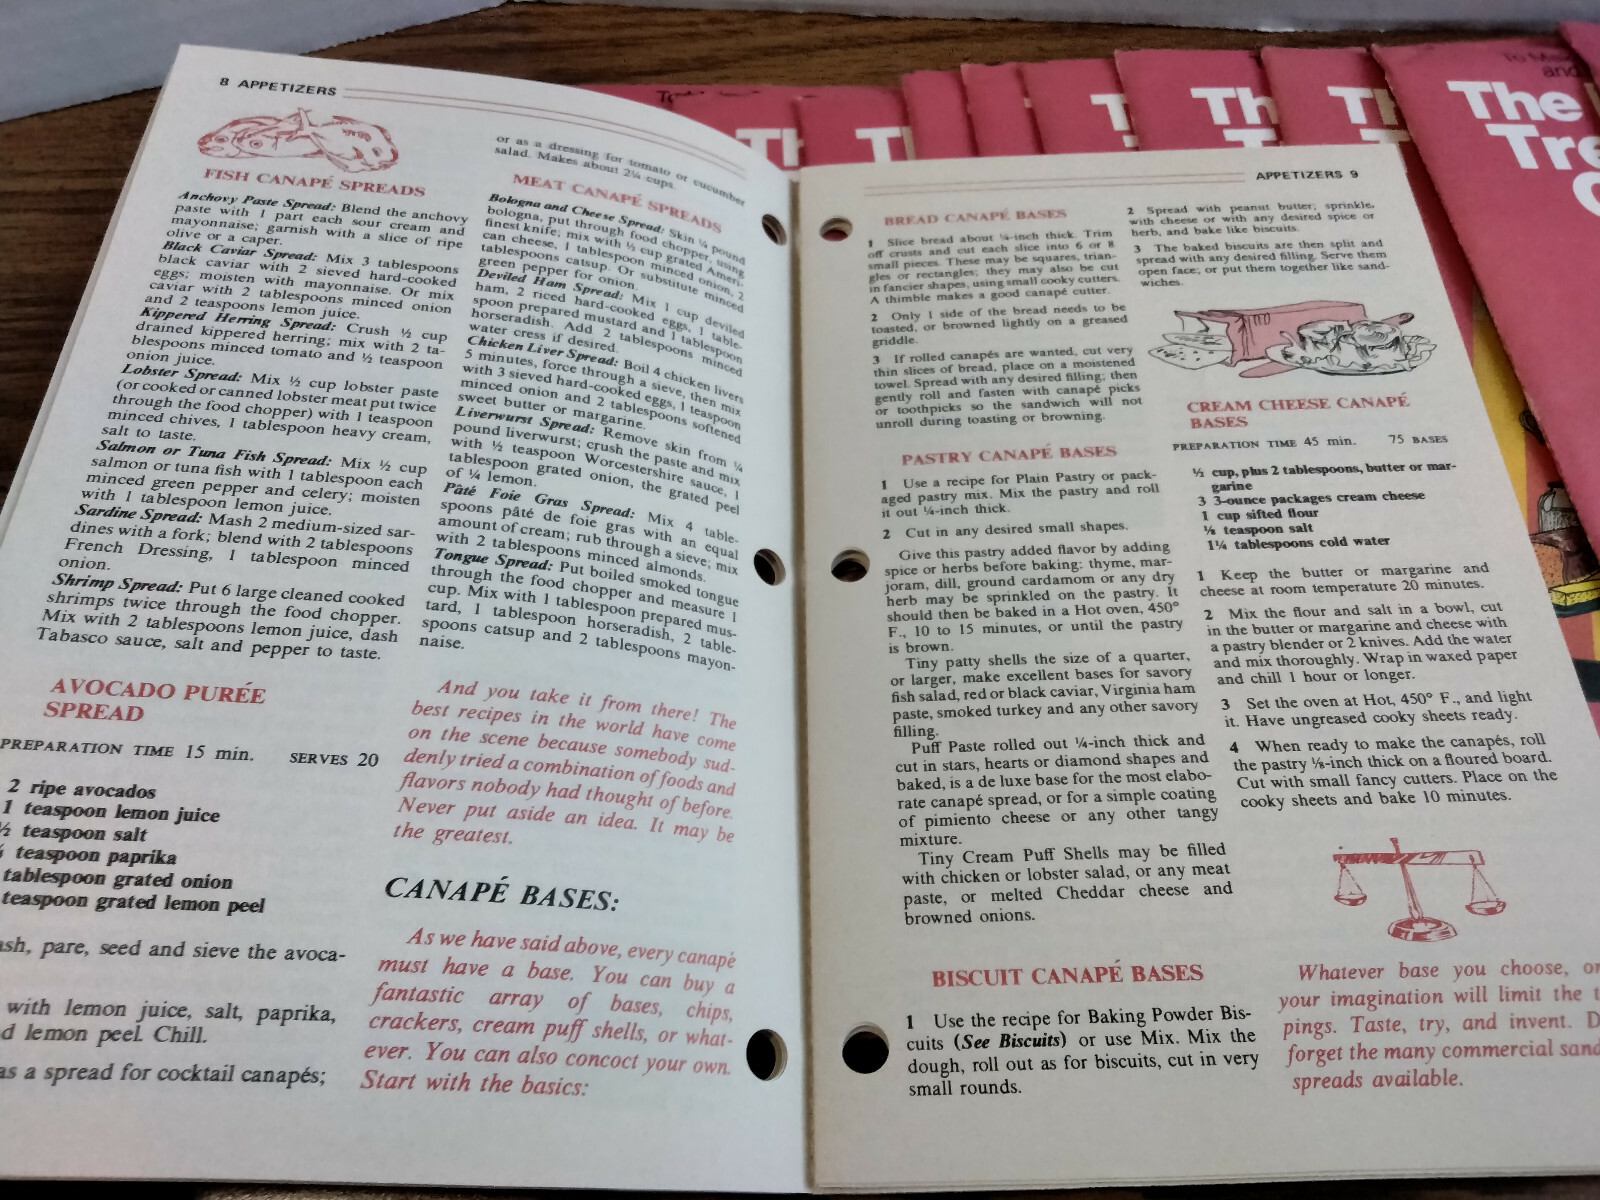 8 APPETIZERS
FISH CANAPÉ SPREADS
Anchovy Paste Spread: Blend the anchovy
paste with 1 part each sour cream and
mayonnaise; garnish with a slice of ripe
olive or a caper.
Black Caviar Spread: Mix 3 tablespoons
black caviar with 2 sieved hard-cooked
eggs; moisten with mayonnaise. Or mix
caviar with 2 tablespoons minced onion
and 2 teaspoons lemon juice.
Kippered Herring Spread: Crush ½ cup
drained kippered herring; mix with 2 ta-
blespoons minced tomato and ½ teaspoon
onion juice.
Lobster Spread: Mix ½ cup lobster paste
(or cooked or canned lobster meat put twice
through the food chopper) with 1 teaspoon
minced chives, 1 tablespoon heavy cream,
salt to taste.
Salmon or Tuna Fish Spread: Mix ½ cup
salmon or tuna fish with 1 tablespoon each
minced green pepper and celery; moisten
with 1 tablespoon lemon juice.
Sardine Spread: Mash 2 medium-sized sar-
dines with a fork; blend with 2 tablespoons
French Dressing, 1 tablespoon minced
onion.
Shrimp Spread: Put 6 large cleaned cooked
shrimps twice through the food chopper.
Mix with 2 tablespoons lemon juice, dash
Tabasco sauce, salt and pepper to taste.
AVOCADO PURÉE
SPREAD
PREPARATION TIME 15 min. SERVES 20
2 ripe avocados
1 teaspoon lemon juice
½ teaspoon salt
teaspoon paprika
tablespoon grated onion
teaspoon grated lemon peel
ash, pare, seed and sieve the avoca-
with lemon juice, salt, paprika,
d lemon peel. Chill.
as a spread for cocktail canapés;
or as a dressing for tomato or cucumber
salad. Makes about 2¼ cups.
MEAT CANAPÉ SPREADS
Bologna and Cheese Spread: Skin ¼ pound
bologna, put through food chopper, using
finest knife; mix with ½ cup grated Ameri-
can cheese, 1 tablespoon minced onion, 2
tablespoons catsup. Or substitute minced
green pepper for onion.
Deviled Ham Spread: Mix 1 cup deviled
ham, 2 riced hard-cooked eggs, 1 table-
spoon prepared mustard and 1 tablespoon
horseradish. Add 2 tablespoons minced
water cress if desired.
Chicken Liver Spread: Boil 4 chicken livers
5 minutes, force through a sieve, then mix
with 3 sieved hard-cooked eggs, 1 teaspoon
minced onion and 2 tablespoons softened
sweet butter or margarine.
Liverwurst Spread: Remove skin from ¼
pound liverwurst; crush the paste and mix
with ½ teaspoon Worcestershire sauce, 1
tablespoon grated onion, the grated peel
of ¼ lemon.
Pâté Foie Gras Spread: Mix 4 table-
spoons pâté de foie gras with an equal
amount of cream; rub through a sieve; mix
with 2 tablespoons minced almonds.
Tongue Spread: Put boiled smoked tongue
through the food chopper and measure 1
cup. Mix with 1 tablespoon prepared mus-
tard, 1 tablespoon horseradish, 2 table-
spoons catsup and 2 tablespoons mayon-
naise.
And you take it from there! The
best recipes in the world have come
on the scene because somebody sud-
denly tried a combination of foods and
flavors nobody had thought of before.
Never put aside an idea. It may be
the greatest.
CANAPÉ BASES:
As we have said above, every canapé
must have a base. You can buy a
fantastic array of bases, chips,
crackers, cream puff shells, or what-
ever. You can also concoct your own.
Start with the basics:
APPETIZERS 9
BREAD CANAPÉ BASES
1 Slice bread about ¼-inch thick. Trim
off crusts and cut each slice into 6 or 8
small pieces. These may be squares, trian-
gles or rectangles; they may also be cut
in fancier shapes, using small cooky cutters.
A thimble makes a good canapé cutter.
2 Only 1 side of the bread needs to be
toasted, or browned lightly on a greased
griddle.
3 If rolled canapés are wanted, cut very
thin slices of bread, place on a moistened
towel. Spread with any desired filling; then
gently roll and fasten with canapé picks
or toothpicks so the sandwich will not
unroll during toasting or browning.
PASTRY CANAPÉ BASES
1 Use a recipe for Plain Pastry or pack-
aged pastry mix. Mix the pastry and roll
it out ¼-inch thick.
2 Cut in any desired small shapes.
Give this pastry added flavor by adding
spice or herbs before baking: thyme, mar-
joram, dill, ground cardamom or any dry
herb may be sprinkled on the pastry. It
should then be baked in a Hot oven, 450°
F., 10 to 15 minutes, or until the pastry
is brown.
Tiny patty shells the size of a quarter,
or larger, make excellent bases for savory
fish salad, red or black caviar, Virginia ham
paste, smoked turkey and any other savory
filling.
Puff Paste rolled out ¼-inch thick and
cut in stars, hearts or diamond shapes and
baked, is a de luxe base for the most elabo-
rate canapé spread, or for a simple coating
of pimiento cheese or any other tangy
mixture.
Tiny Cream Puff Shells may be filled
with chicken or lobster salad, or any meat
paste, or melted Cheddar cheese and
browned onions.
BISCUIT CANAPÉ BASES
1 Use the recipe for Baking Powder Bis-
cuits (See Biscuits) or use Mix. Mix the
dough, roll out as for biscuits, cut in very
small rounds.
2 Spread with peanut butter; sprinkle,
with cheese or with any desired spice or
herb, and bake like biscuits.
3 The baked biscuits are then split and
spread with any desired filling. Serve them
open face; or put them together like sand-
wiches.
CREAM CHEESE CANAPÉ
BASES
PREPARATION TIME 45 min. 75 BASES
½ cup, plus 2 tablespoons, butter or mar-
garine
3 3-ounce packages cream cheese
1 cup sifted flour
⅛ teaspoon salt
1¼ tablespoons cold water
1 Keep the butter or margarine and
cheese at room temperature 20 minutes.
2 Mix the flour and salt in a bowl, cut
in the butter or margarine and cheese with
a pastry blender or 2 knives. Add the water
and mix thoroughly. Wrap in waxed paper
and chill 1 hour or longer.
3 Set the oven at Hot, 450° F., and light
it. Have ungreased cooky sheets ready.
4 When ready to make the canapés, roll
the pastry ⅛-inch thick on a floured board.
Cut with small fancy cutters. Place on the
cooky sheets and bake 10 minutes.
Whatever base you choose, on
your imagination will limit the t
pings. Taste, try, and invent. D
forget the many commercial sand
spreads available.
The
Tre